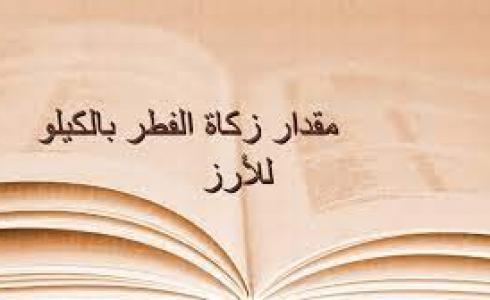 مقدار زكاة الفطر بالكيلو
للأرز